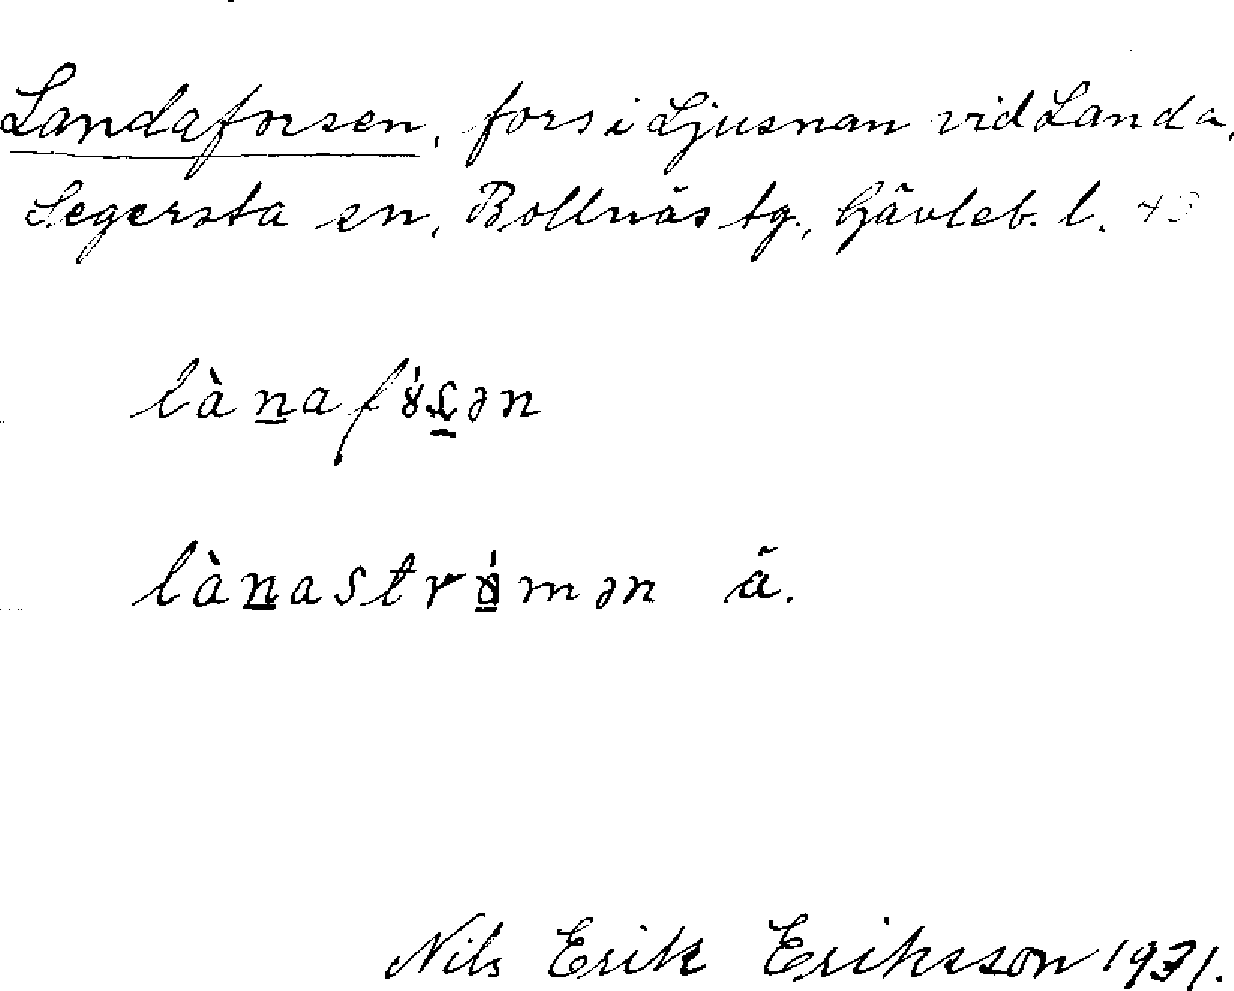 Landaforsen, fors i Ljusnan vid Landa,
Segersta sn, Bollnäs tg., Gävleb. l. 43
lànafɤ́ʂən
lànastrɤ́mən ä.
Nils Erik Eriksson 1931.